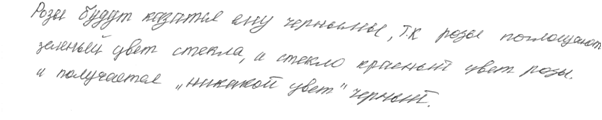 Розы будут казаться ему черными, т.к розы поглощают
зеленый цвет стекла, а стекло красный цвет розы.
и получается „никакой цвет" черный.